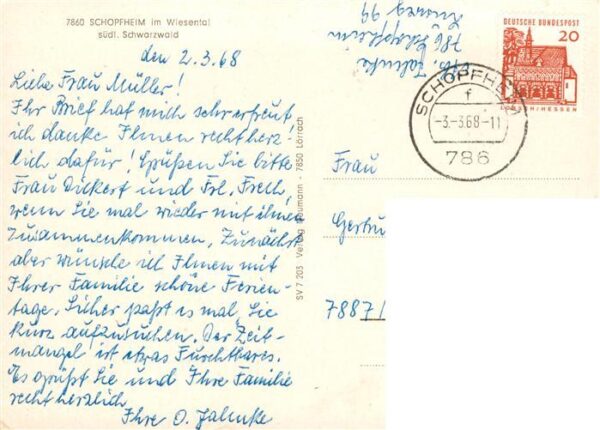 7860 SCHOPFHEIM im Wiesental
südl. Schwarzwald
den 2.3.68
Liebe Frau Müller!
Ihr Brief hat mich sehr erfreut
ich danke Ihnen recht herz!
lich dafür! Grüßen Sie bitte
Frau Dilkert und Frl. Freth,
wenn Sie mal wieder mit ihnen
zusammenkommen, Zunächst
aber wünsche ich Ihnen mit
Ihrer Familie schöne Ferien-
tage. Sicher paßt es mal, Sie
kurz aufzusuchen. Der Zeit-
mangel ist etwas Furchtbares.
Es grüßt Sie und Ihre Familie
recht herzlich
Ihre O. Jahnke
SV 7 203 Verlag Neumann - 7850 Lörrach
Jahnke
786 Schopfheim
99
DEUTSCHE BUNDESPOST
20
LORSCH/HESSEN
SCHOPFHEIM
f
-3.-3.68-11
786
Frau
Gertru
7887/